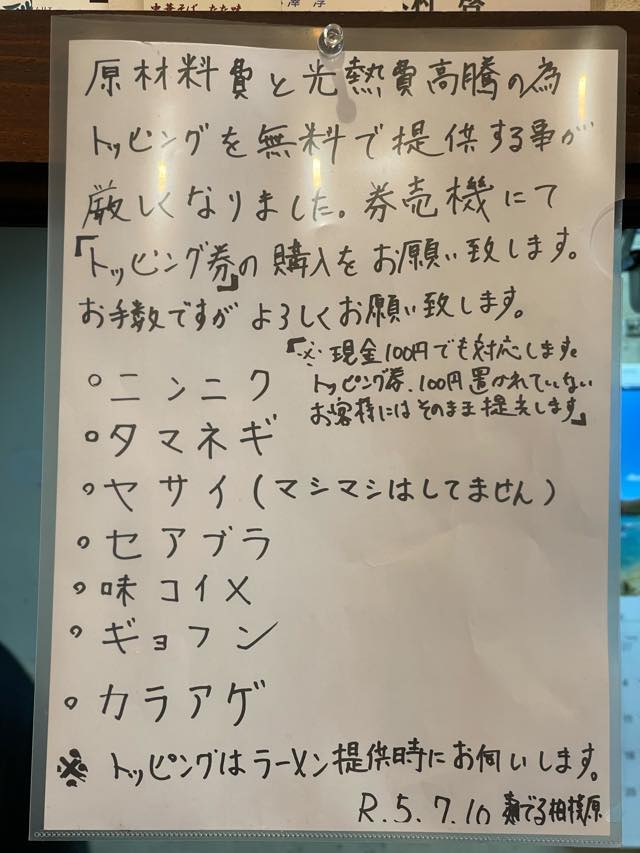 中華そば たな味
原材料費と光熱費高騰の為
トッピングを無料で提供する事が
厳しくなりました。券売機にて
「トッピング券」の購入をお願い致します。
お手数ですがよろしくお願い致します。
「※現金100円でも対応します。
トッピング券、100円置かれていない
お客様にはそのまま提供します」
○ニンニク
○タマネギ
○ヤサイ(マシマシはしてません)
○セアブラ
○味コイメ
○ギョフン
○カラアゲ
※トッピングはラーメン提供時にお伺いします。
R.5.7.10 麺でる相模原